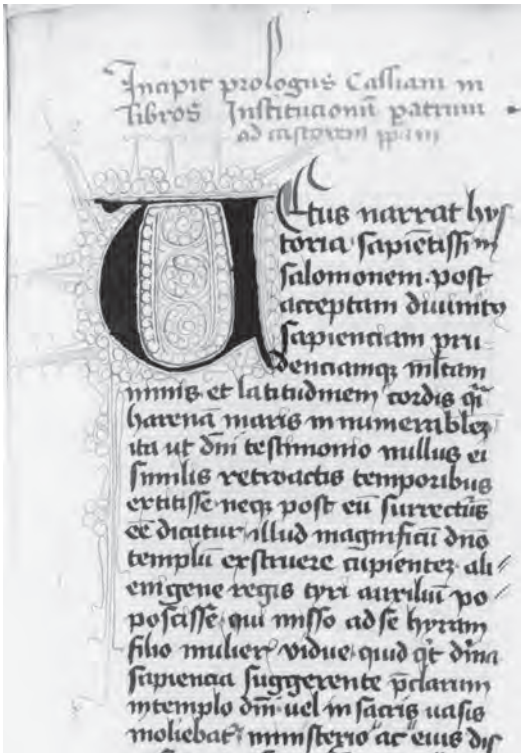 Incipit prologus Cassiani in
libros Institucionū patrum
ad castorem
Vetus narrat hys
toria sapiētissīm
salomonem. post
acceptam diuinitꝰ
sapienciam pru-
denciamqꝫ ml̄tam
nimis et latitudinem cordis qͥ
harenā maris innumerabileꝫ
ita ut dn̄i testimonio nullus ei
similis retroactis temporibus
extitisse neqꝫ post eū surrectus
eē dicatur illud magnificū dn̄o
templū exstruere cupienteꝫ ali//
enigene regis tyri auxiliū po//
poscisse. qui misso ad se hyram
filio mulier̄ vidue. quid qͥt diīna
sapiencia suggerente p̄clarum
intemplo dn̄i uel in sacris uasis
moliebat᷑ ministerio ac eius dis